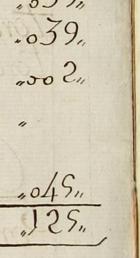 „039„
„002„
„
„045„
„125„